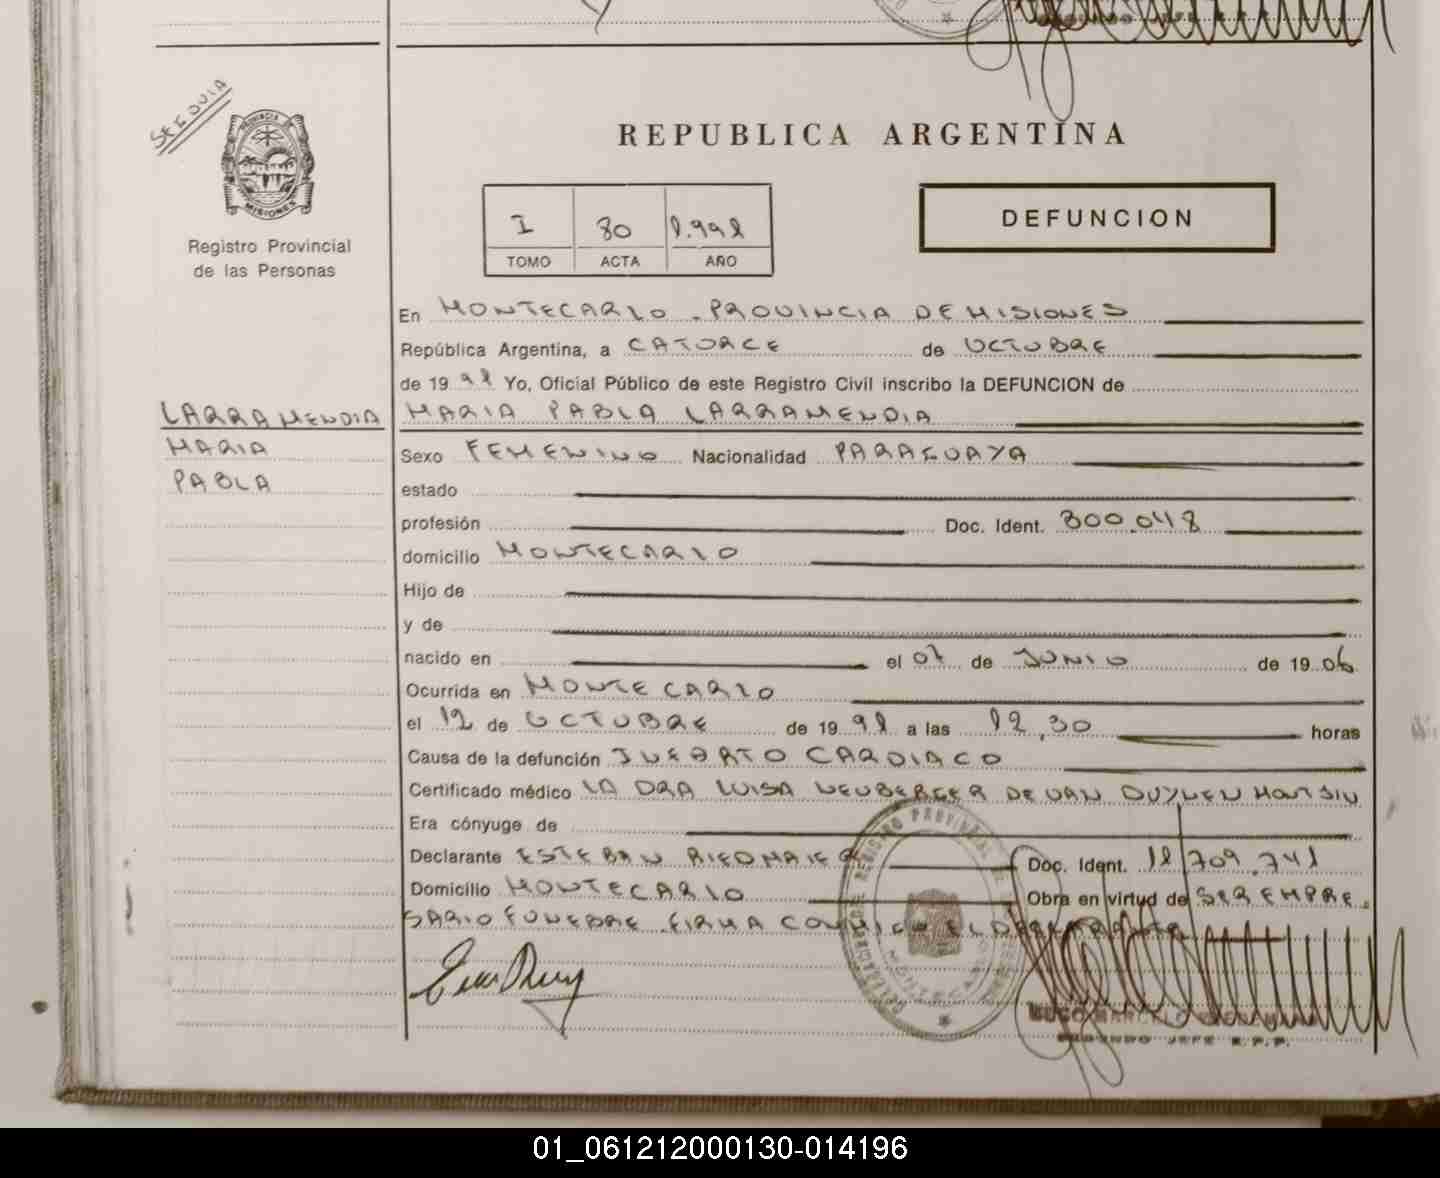 SEGUIA
PROVINCIA DE
MISIONES
Registro Provincial
de las Personas
REPUBLICA ARGENTINA
I 80 1.991
TOMO ACTA AÑO
DEFUNCION
En MONTECARLO - PROVINCIA DE MISIONES
República Argentina, a CATORCE de OCTUBRE
de 19 91 Yo, Oficial Público de este Registro Civil inscribo la DEFUNCION de
LARRAMENDIA MARIA PABLA LARRAMENDIA
MARIA
PABLA
Sexo FEMENINO Nacionalidad PARAGUAYA
estado
profesión Doc. Ident. 300.048
domicilio MONTECARLO
Hijo de
y de
nacido en el 07 de JUNIO de 19 06
Ocurrida en MONTECARLO
el 12 de OCTUBRE de 19 91 a las 12,30 horas
Causa de la defunción INFARTO CARDIACO
Certificado médico LA DRA LUISA NEUBERGER DE VAN
Era cónyuge de
Declarante ESTEBAN RIEDMAIER Doc. Ident. 11.709.741
Domicilio MONTECARLO Obra en virtud de SER EMPRE.
SARIO FUNEBRE. FIRMA CONMIGO EL DECLARANTE
REGISTRO PROVINCIAL DE
MONTECARLO
HUGO MARCELO
SEGUNDO JEFE R.P.P.
01_061212000130-014196